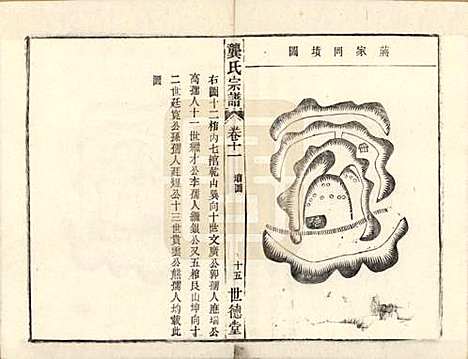 圖墳囘家蔣
龔氏宗譜
卷十一
墳圖
十五
世德堂
右圖十二棺內七棺乾山巽向十世文廣公郭孺人應瑞公
高孺人十一世繼才公李孺人繼銀公又五棺艮山坤向十
二世廷寬公孫孺人廷煌公十三世貴雲公熊孺人均載此
圖